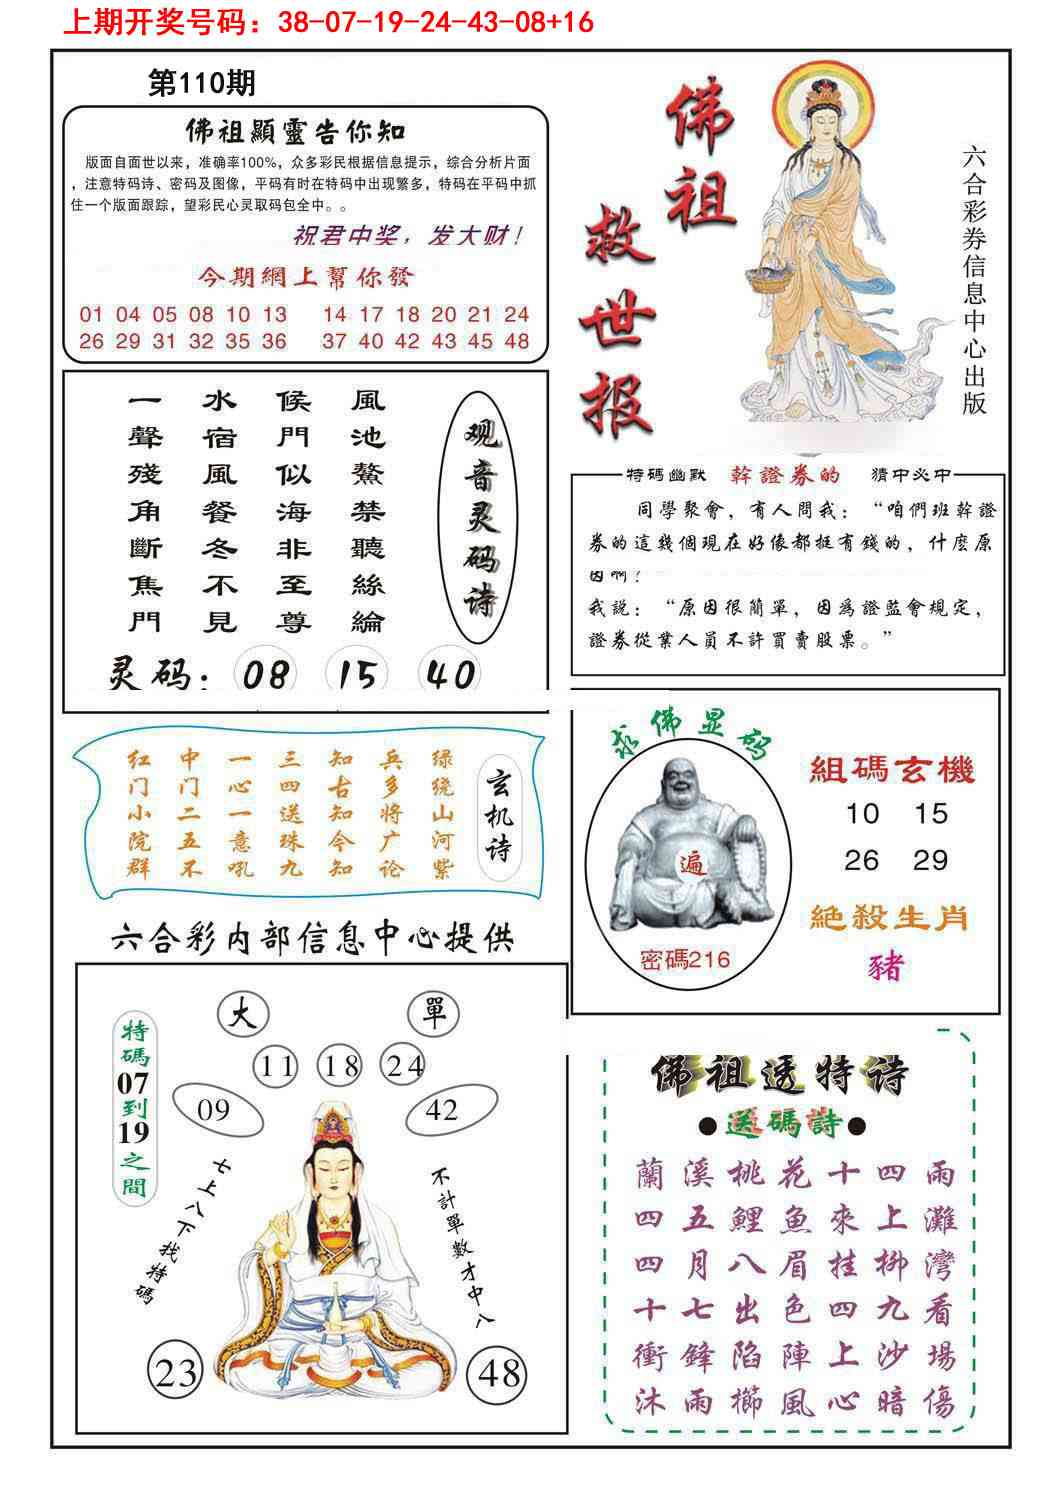 上期开奖号码：38-07-19-24-43-08+16
第110期
佛祖顯靈告你知
版面自面世以来，准确率100%，众多彩民根据信息提示，综合分析片面
，注意特码诗、密码及图像，平码有时在特码中出现繁多，特码在平码中抓
住一个版面跟踪，望彩民心灵取码包全中。。
祝君中奖，发大财！
今期網上幫你發
01 04 05 08 10 13 14 17 18 20 21 24
26 29 31 32 35 36 37 40 42 43 45 48
佛祖
救世报
六合彩券信息中心出版
观音灵码诗
風池鰲禁聽絲綸
候門似海非至尊
水宿風餐冬不見
一聲殘角斷焦門
灵码：08 15 40
特碼幽默 幹證券的 猜中必中
同學聚會，有人問我：“咱們班幹證
券的這幾個現在好像都挺有錢的，什麽原
因啊？
我説：“原因很簡單，因爲證監會規定，
證券從業人員不許買賣股票。”
玄机诗
绿绕山河紫
兵多将广论
知古知今知
三四送珠九
一心一意吼
中门二五不
红门小院群
六合彩内部信息中心提供
求佛显码
遍
密碼216
組碼玄機
10 15
26 29
絕殺生肖
豬
特碼07到19之間
大 單
11 18 24
09 42
七上八下找特碼
不計單數才中八
23 48
佛祖透特诗
●送碼詩●
蘭溪桃花十四雨
四五鯉魚來上灘
四月八眉挂柳灣
十七出色四九看
衝鋒陷陣上沙場
沐雨櫛風心暗傷